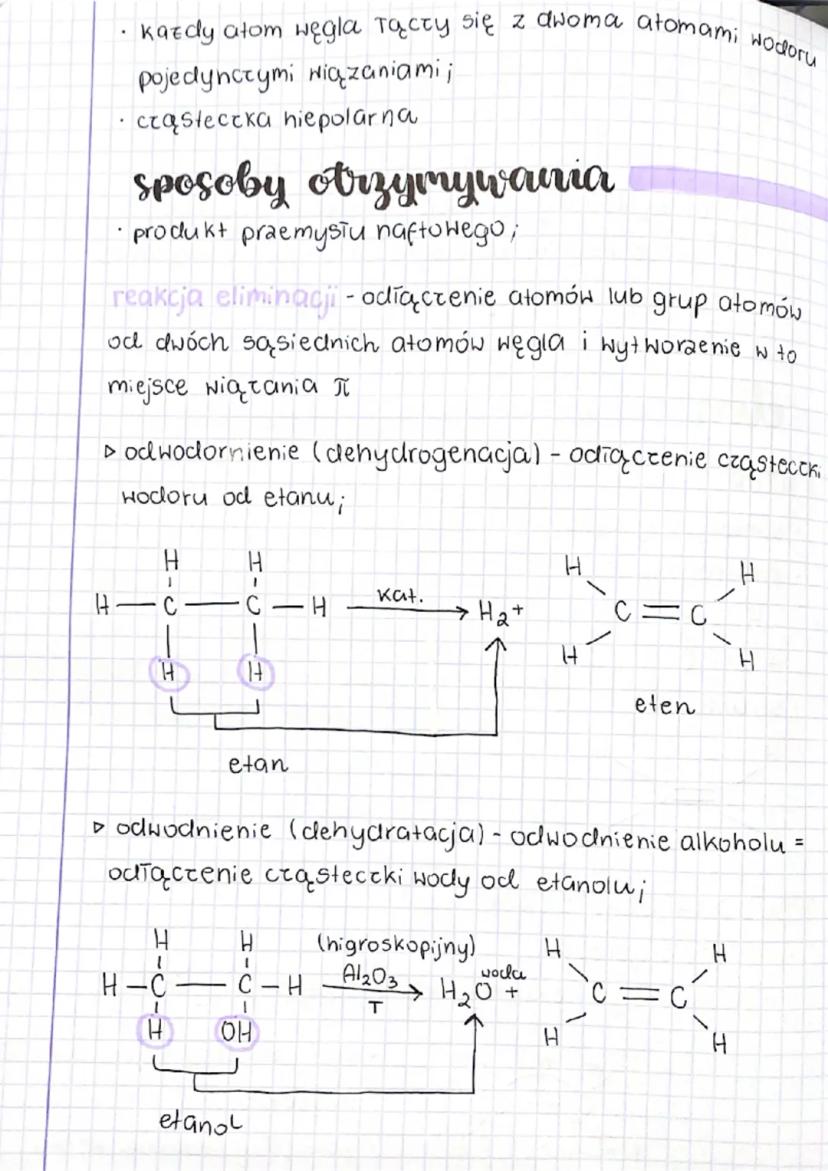 · każdy atom węgla łączy się z dwoma atomami wodoru
pojedynczymi wiązaniami;
· cząsteczka niepolarna
sposoby otrzymywania
· produkt przemysłu naftowego;
reakcja eliminacji - odłączenie atomów lub grup atomów
od dwóch sąsiednich atomów węgla i wytworzenie w to
miejsce wiązania π
▷ odwodornienie (dehydrogenacja) - odłączenie cząsteczki
wodoru od etanu;
H H H H
H — C — C — H kat. → H₂ + C = C
H H H H
eten
etan
▷ odwodnienie (dehydratacja) - odwodnienie alkoholu =
odłączenie cząsteczki wody od etanolu;
H H (higroskopijny) H H
H — C — C — H Al₂O₃ T → H₂O woda + C = C
H OH H H
etanol